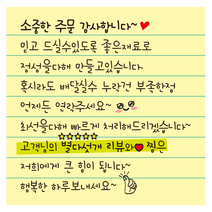 소중한 주문 감사합니다~
믿고 드실수있도록 좋은재료로
정성을다해 만들고있습니다
혹시라도 배달실수 누락건 부족한점
언제든 연락주세요~
최선을다해 빠르게 처리해드리겠습니다~
고객님의 별다섯개 리뷰와 찜은
저희에게 큰 힘이 됩니다~
행복한 하루보내세요~